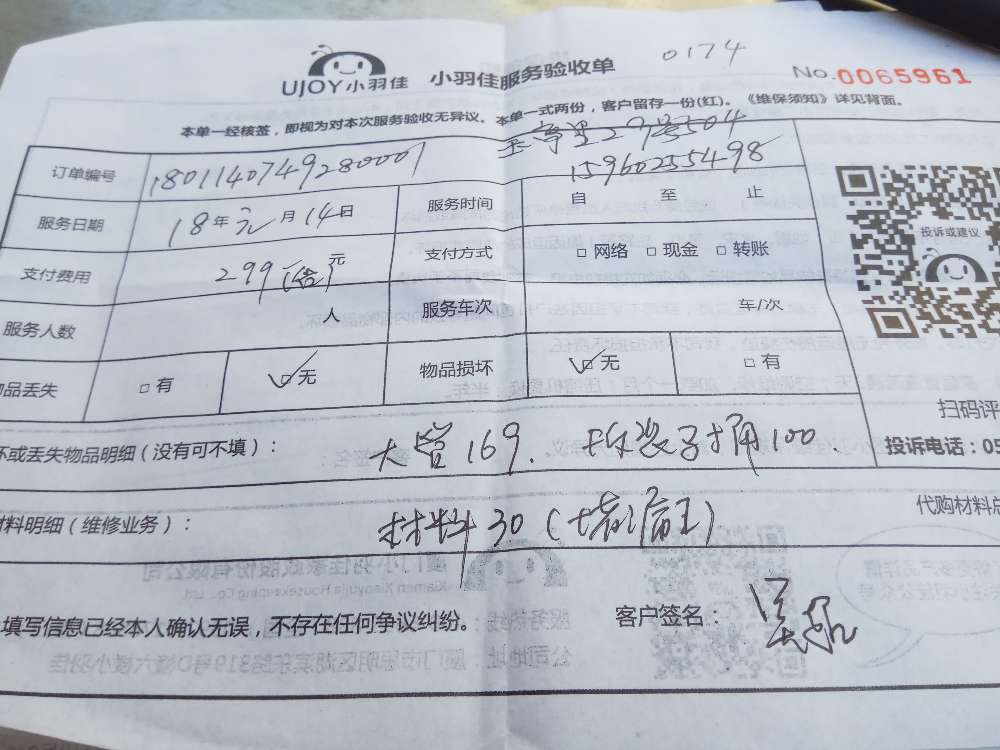 0174
UJOY小羽佳 小羽佳服务验收单 No.0065961
本单一经核签，即视为对本次服务验收无异议。本单一式两份，客户留存一份(红)。《维保须知》详见背面。
里29号504
15960255498
订单编号 1801140749280001
服务日期 18年元月14日 服务时间 自 至 止
支付费用 299 元 支付方式 □网络 □现金 □转账
服务人数 人 服务车次 车/次
物品丢失 □有 ☑无 物品损坏 ☑无 □有
投诉或建议
扫码评
坏或丢失物品明细（没有可不填）： 大管169. 100
投诉电话：05
材料明细（维修业务）： 材料30（堵漏王）
代购材料总
填写信息已经本人确认无误，不存在任何争议纠纷。 客户签名：